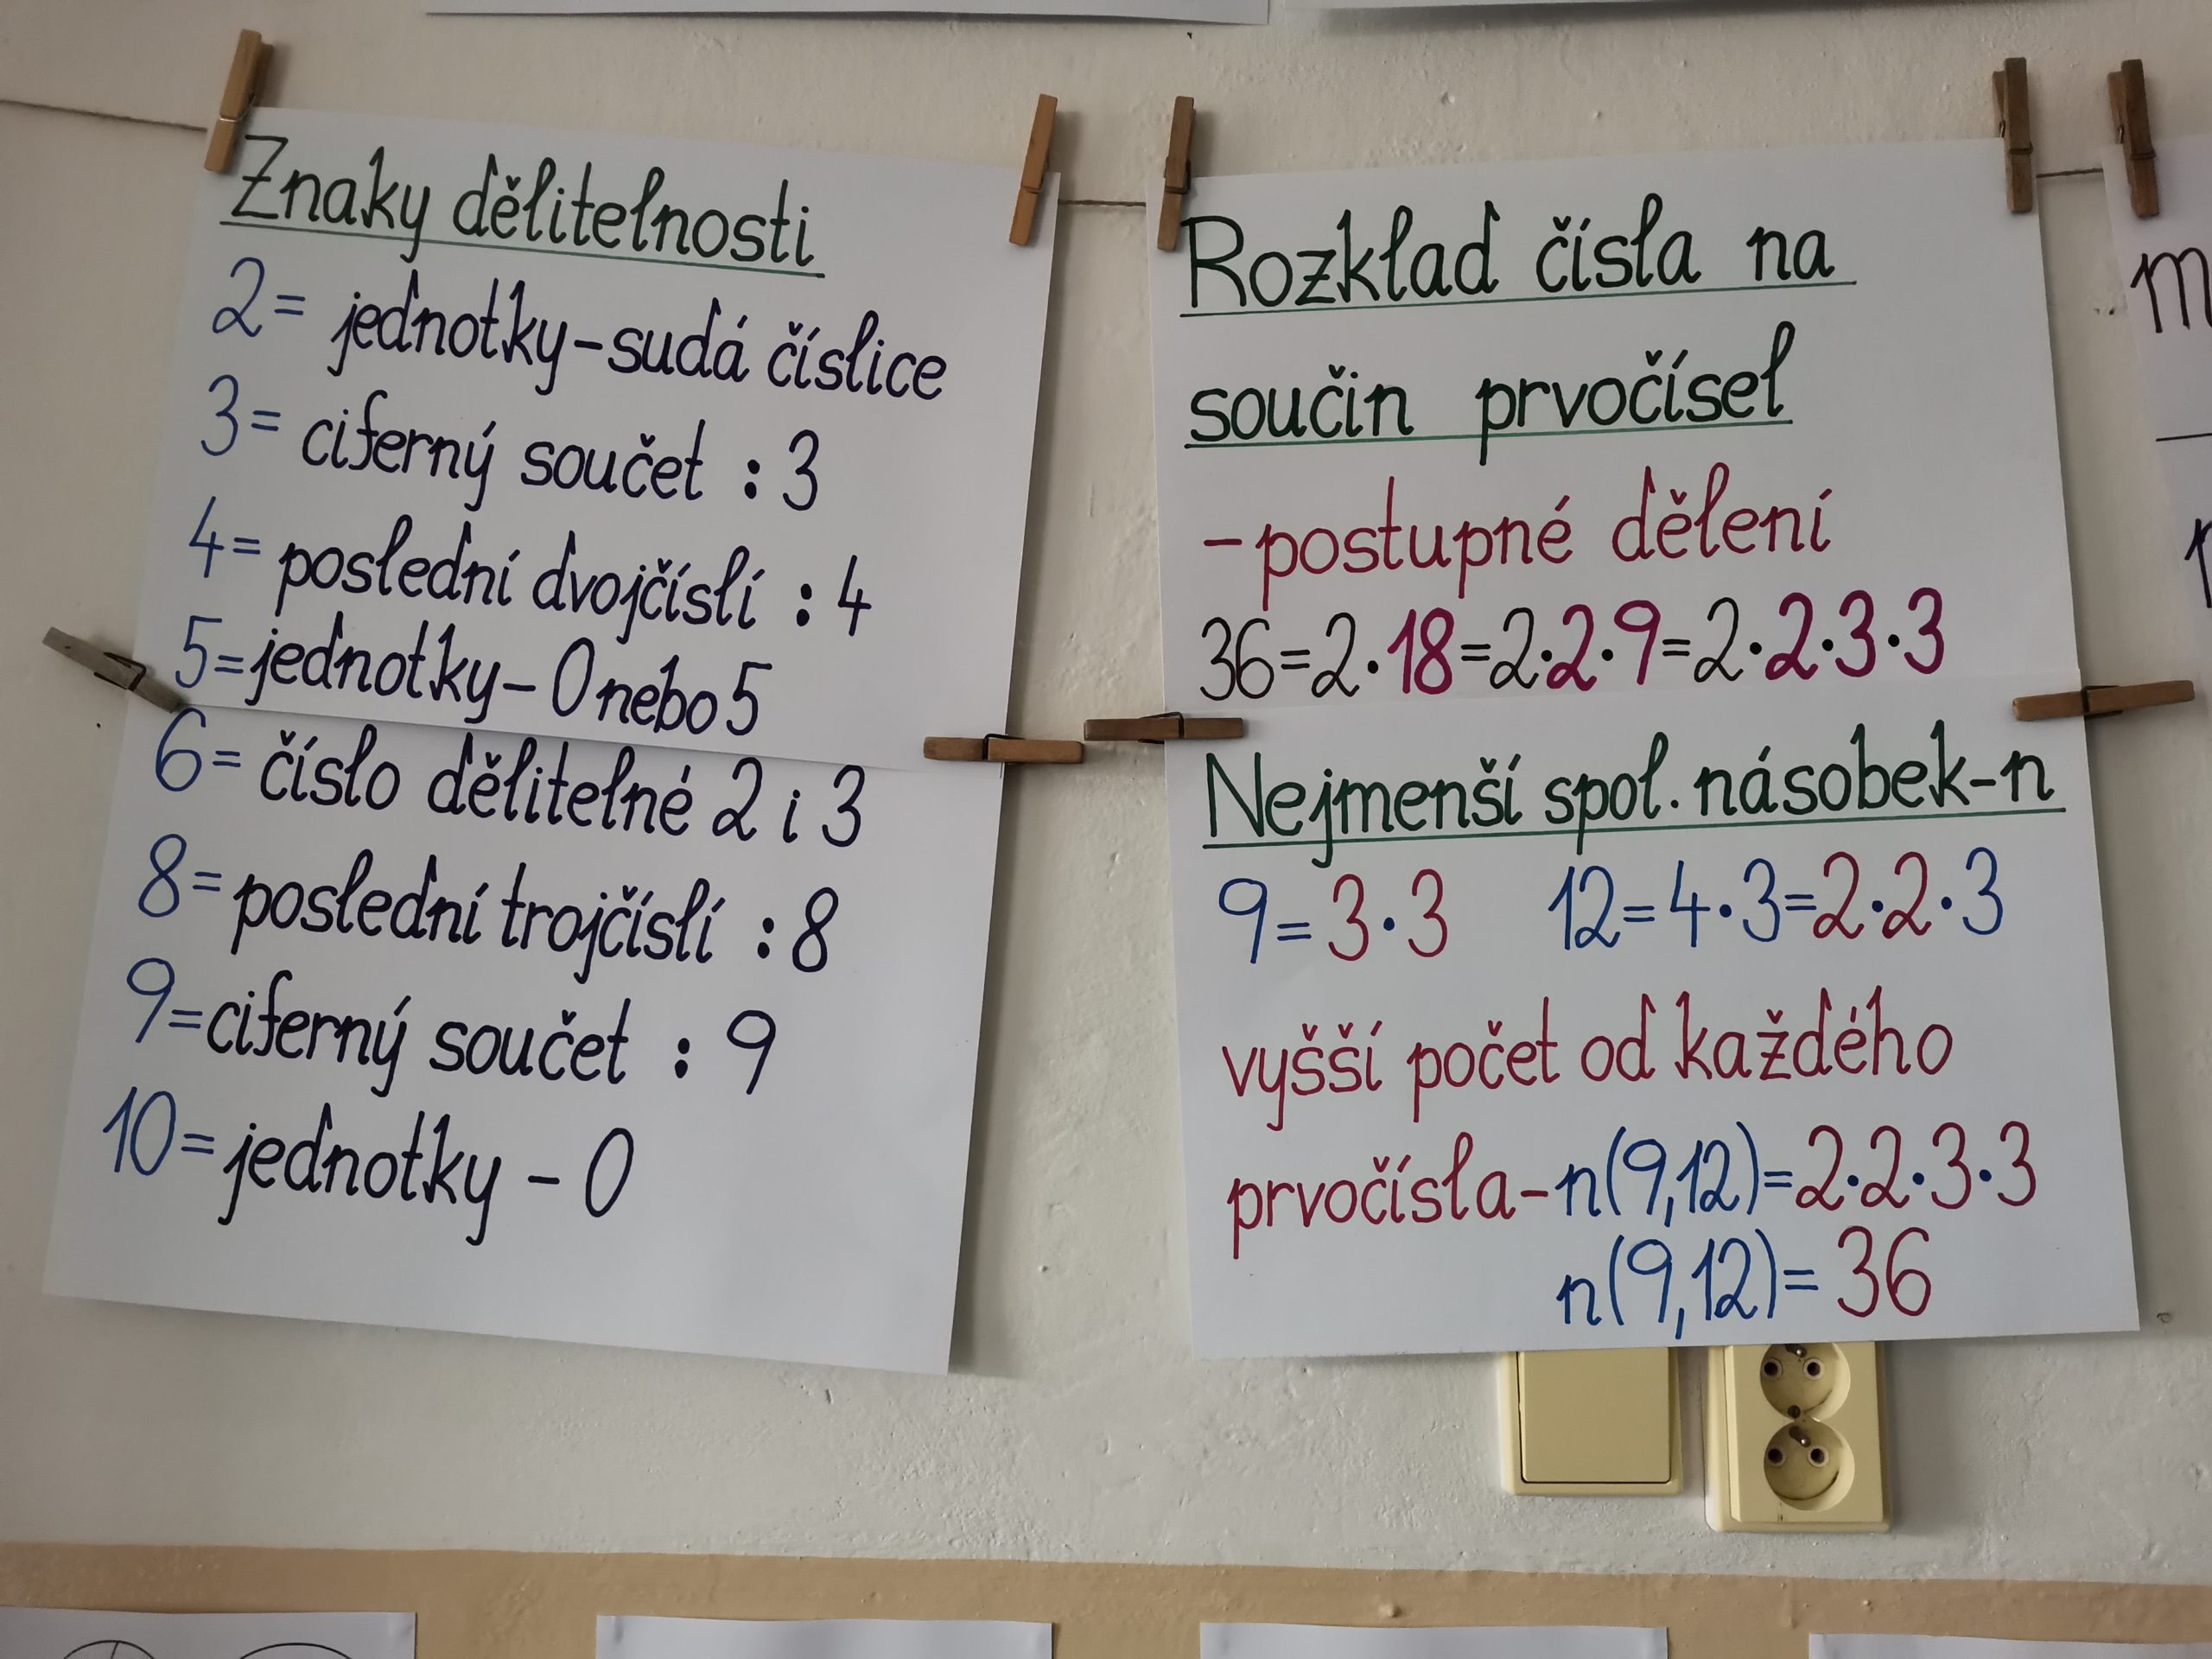 Znaky dělitelnosti
2= jednotky-sudá číslice
3= ciferný součet : 3
4= poslední dvojčíslí : 4
5=jednotky-0 nebo 5
6= číslo dělitelné 2 i 3
8= poslední trojčíslí : 8
9=ciferný součet : 9
10=jednotky - 0
Rozklad čísla na
součin prvočísel
-postupné dělení
36=2·18=2·2·9=2·2·3·3
Nejmenší spol. násobek-n
9=3·3 12=4·3=2·2·3
vyšší počet od každého
prvočísla-n(9,12)=2·2·3·3
n(9,12)=36